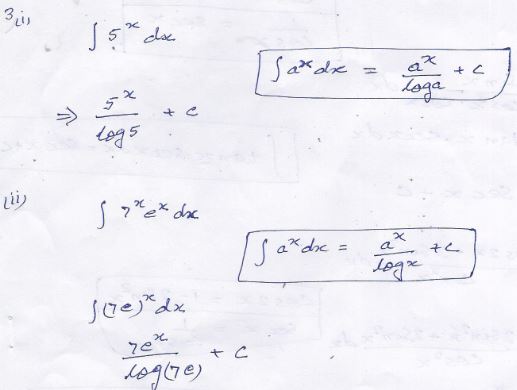 3(i)
∫ 5^x dx
∫ a^x dx = a^x/log a + c
⇒ 5^x/log 5 + c
(ii)
∫ 7^x e^x dx
∫ a^x dx = a^x/log x + c
∫ (7e)^x dx
7e^x/log(7e) + c